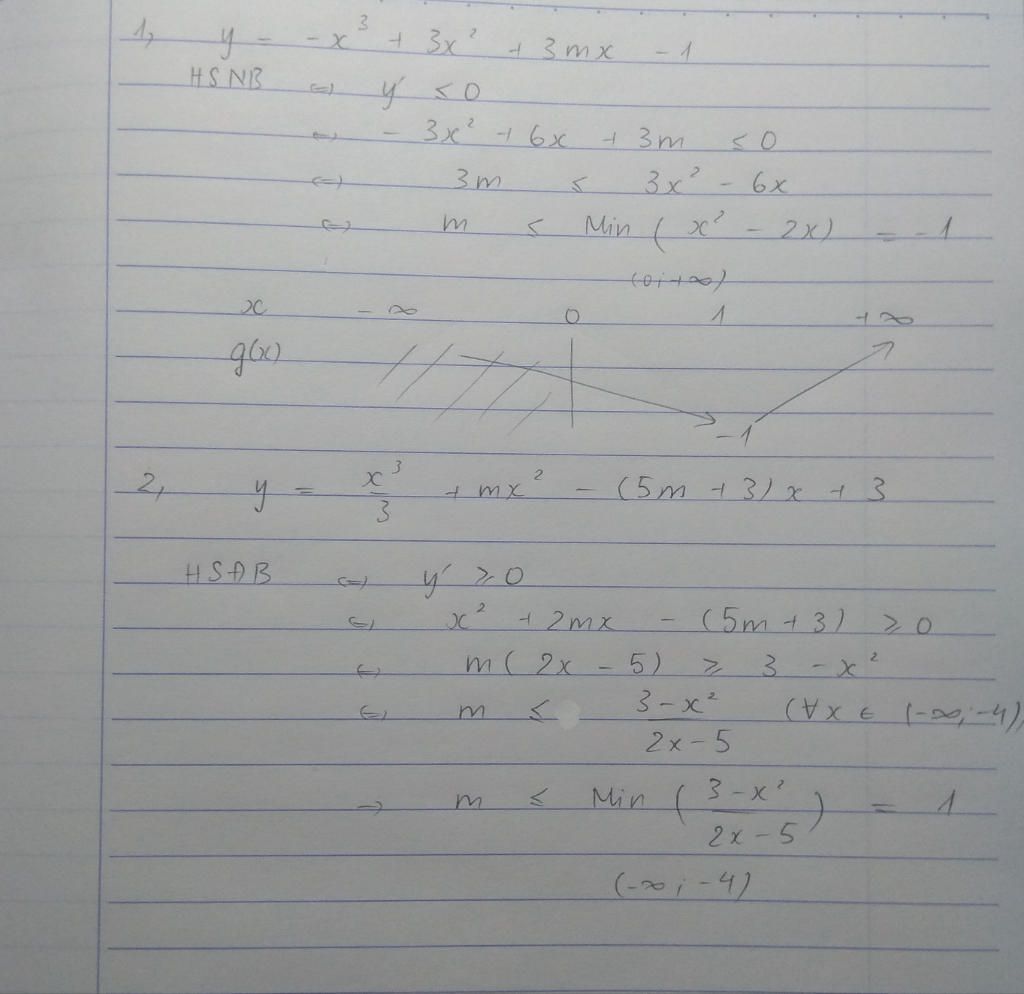 1, y = -x³ + 3x² + 3mx - 1
HSNB ⇔ y' ≤ 0
⇔ - 3x² + 6x + 3m ≤ 0
⇔ 3m ≤ 3x² - 6x
⇔ m ≤ Min ( x² - 2x) = -1
(0; +∞)
x -∞ 0 1 +∞
g(x)
-1
2, y = x³/3 + mx² - (5m + 3) x + 3
HSĐB ⇔ y' ≥ 0
⇔ x² + 2mx - (5m + 3) ≥ 0
⇔ m( 2x - 5) ≥ 3 - x²
⇔ m ≤ (3 - x²)/(2x - 5) (∀x ∈ (-∞; -4)
→ m ≤ Min ( (3 - x²)/(2x - 5) ) = 1
(-∞; -4)